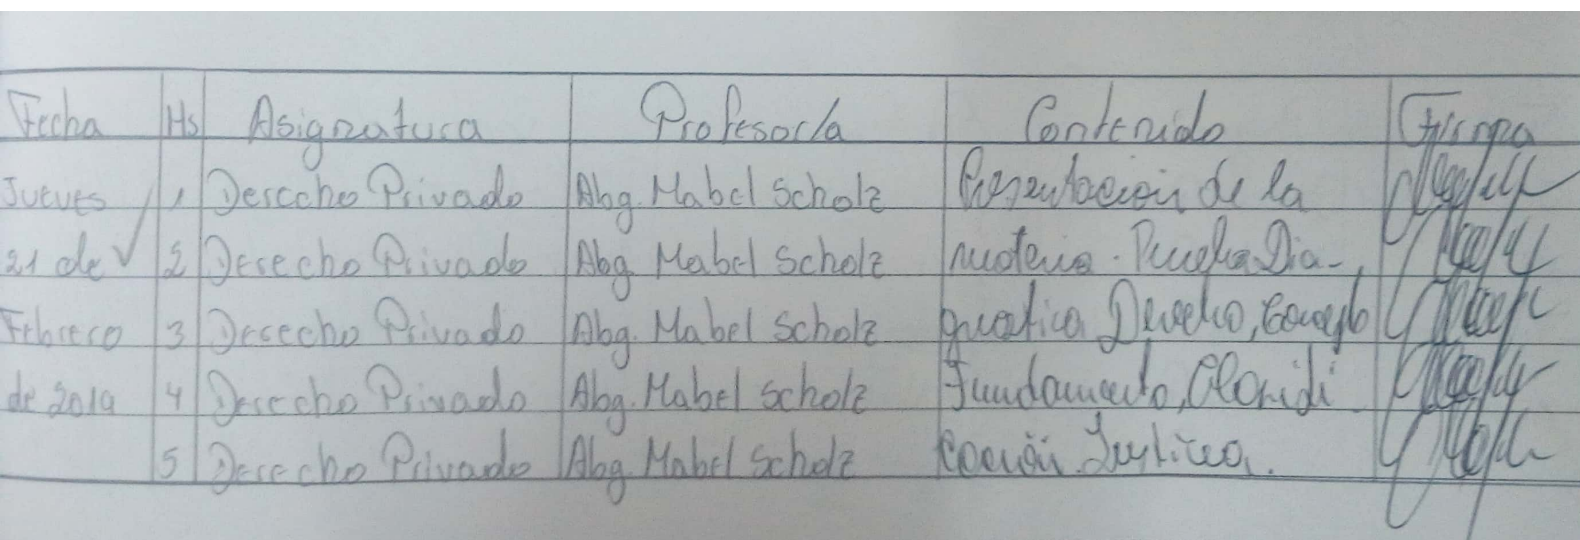 Fecha Hs Asignatura Profesor/a Contenido Firma
Jueves 1 Derecho Privado Abg. Mabel Scholz Presentación de la
21 de 2 Derecho Privado Abg. Mabel Scholz materia. Prueba Dia-
Febrero 3 Derecho Privado Abg. Mabel Scholz gnostica Derecho, Concepto
de 2019 4 Derecho Privado Abg. Mabel Scholz Fundamento,
5 Derecho Privado Abg. Mabel Scholz Justicia.